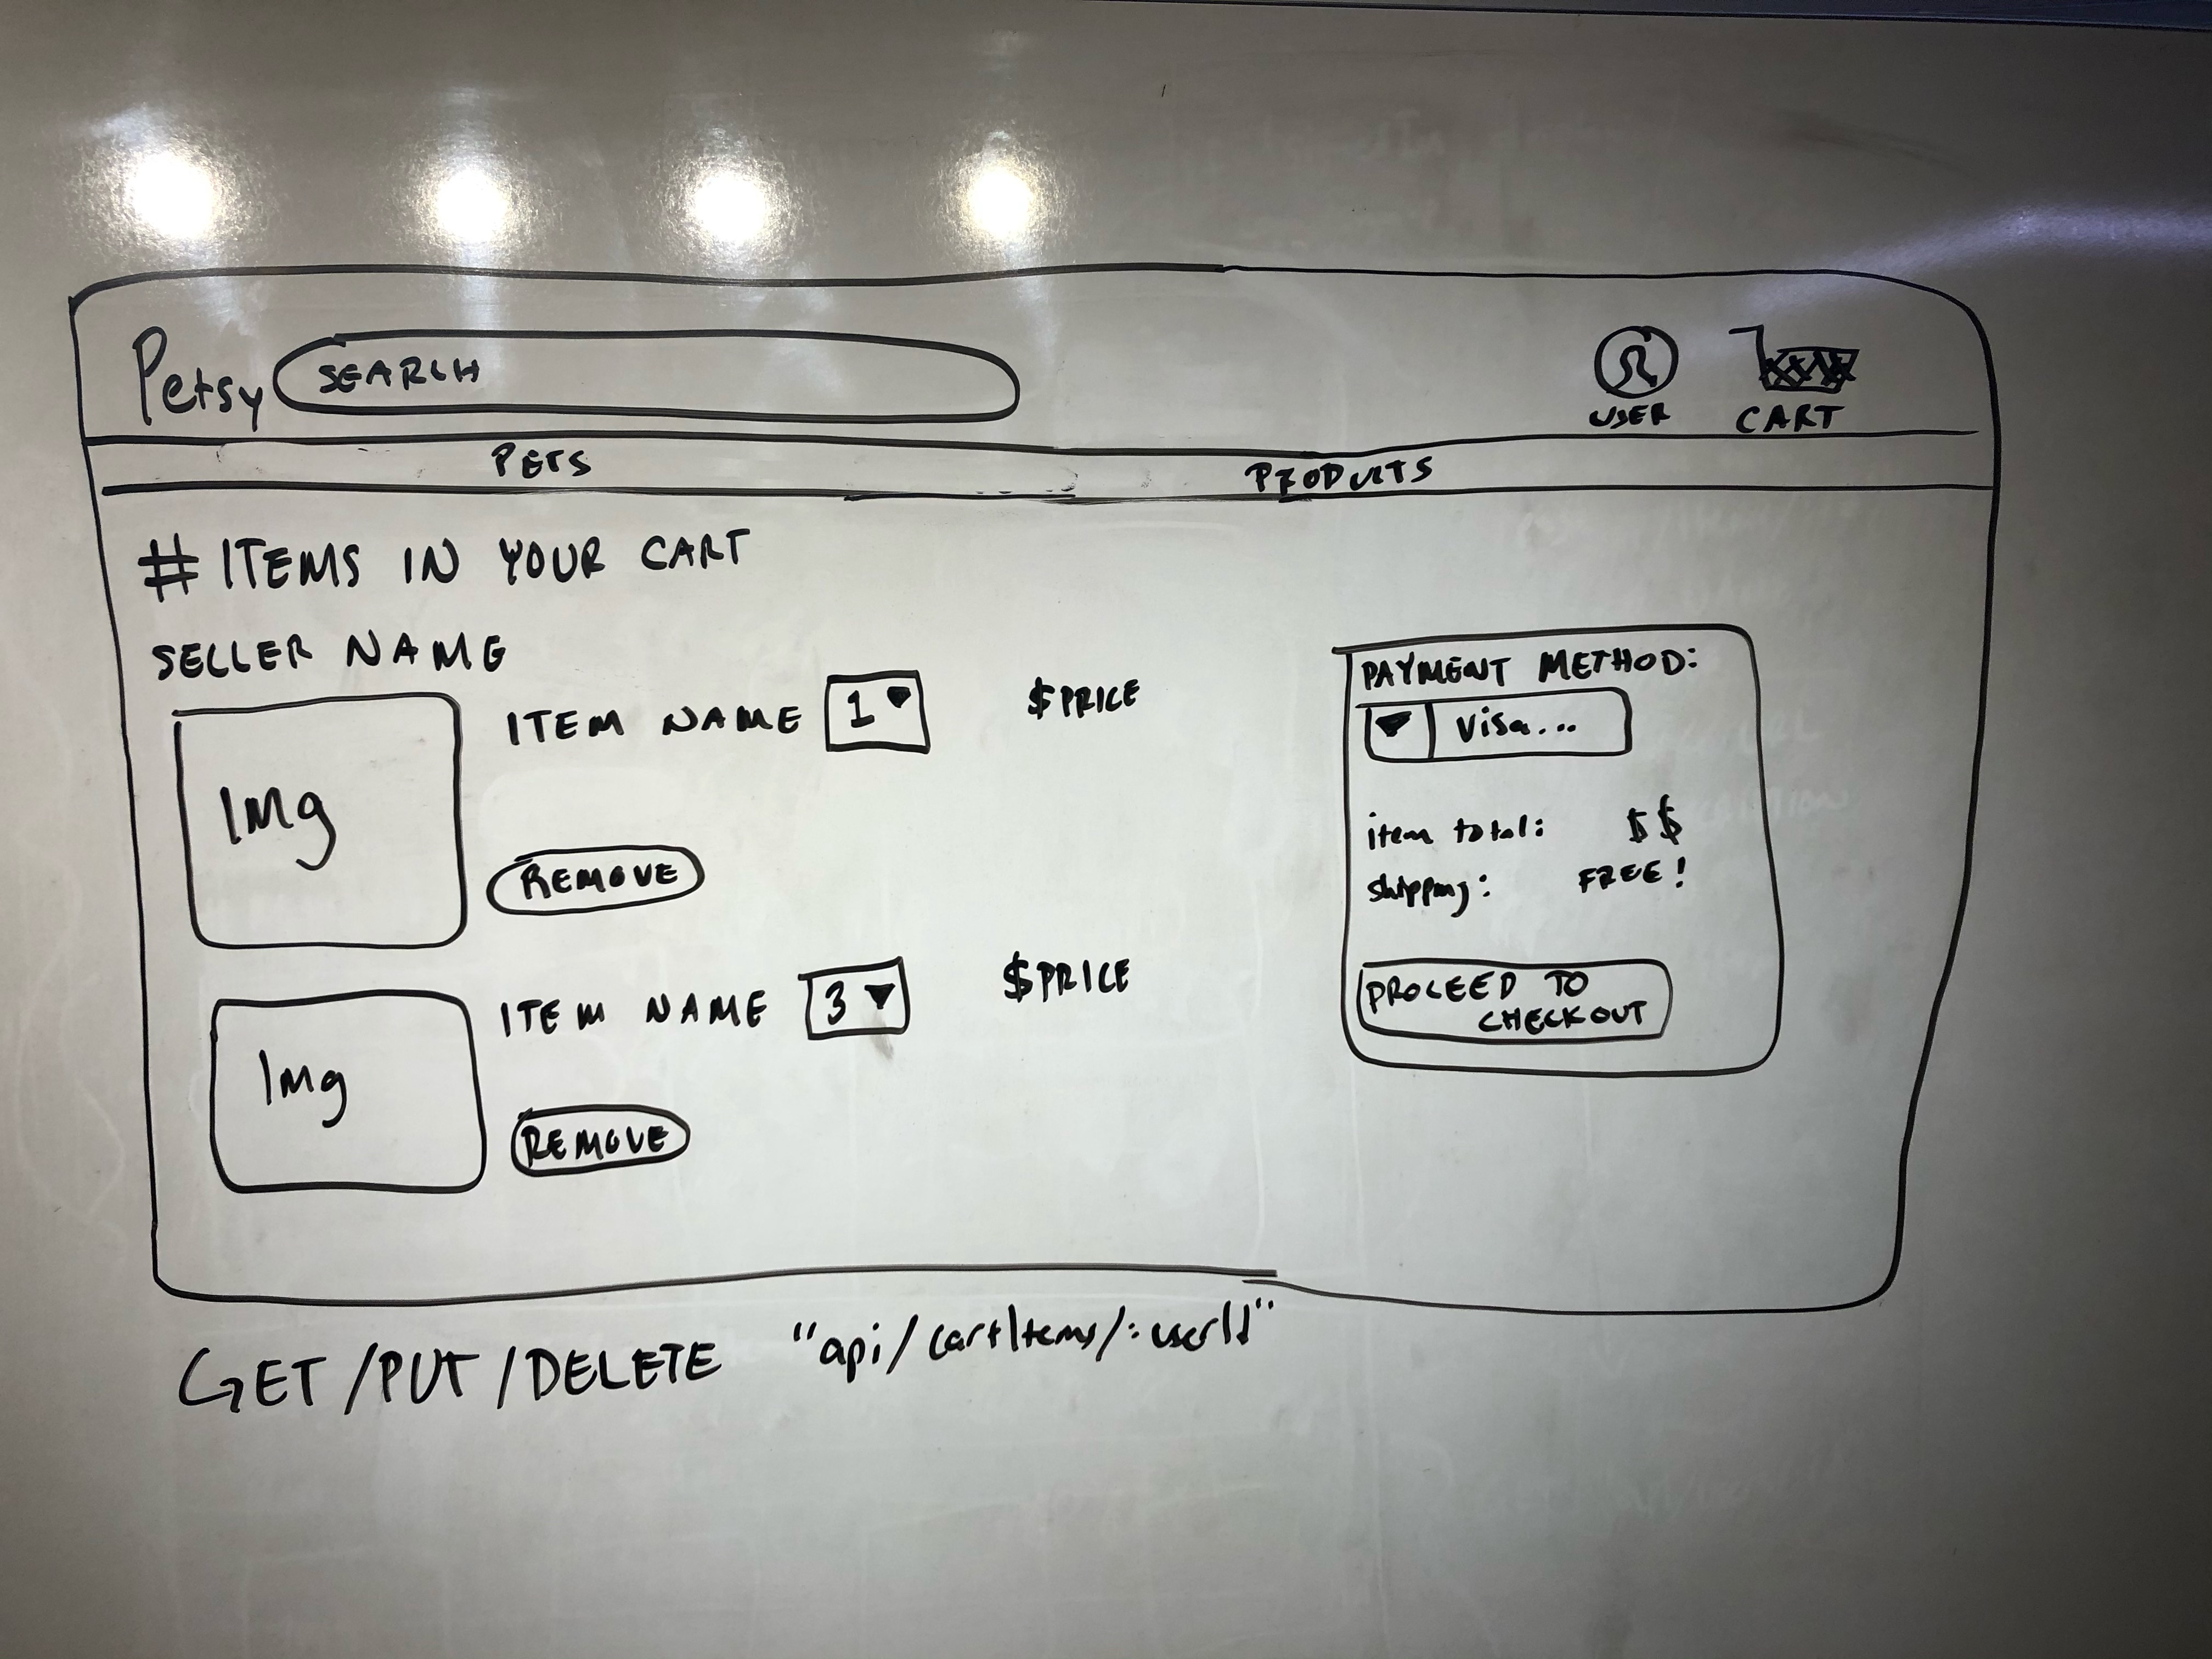 Petsy
SEARCH
USER
CART
PETS
PRODUCTS
# ITEMS IN YOUR CART
SELLER NAME
Img
ITEM NAME 1
$PRICE
REMOVE
Img
ITEM NAME 3
$PRICE
REMOVE
PAYMENT METHOD:
Visa...
item total: $$
shipping: FREE!
PROCEED TO
CHECKOUT
GET/PUT/DELETE "api/cartItems/:userId"